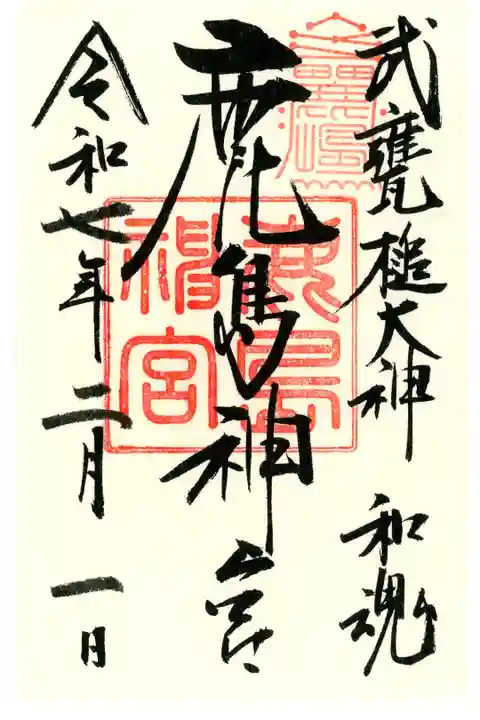 武甕槌大神 和魂
鹿島神宮
令和七年二月一日
鹿島神宮